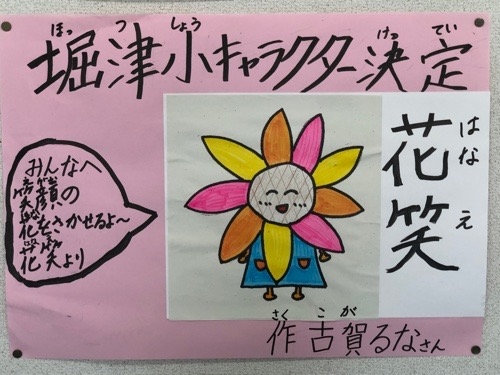 ほっつしょう けってい
堀津小キャラクター決定
花笑
はなえ
みんなへ
の
さかせるよ～
花笑より
さく こが
作 古賀るなさん